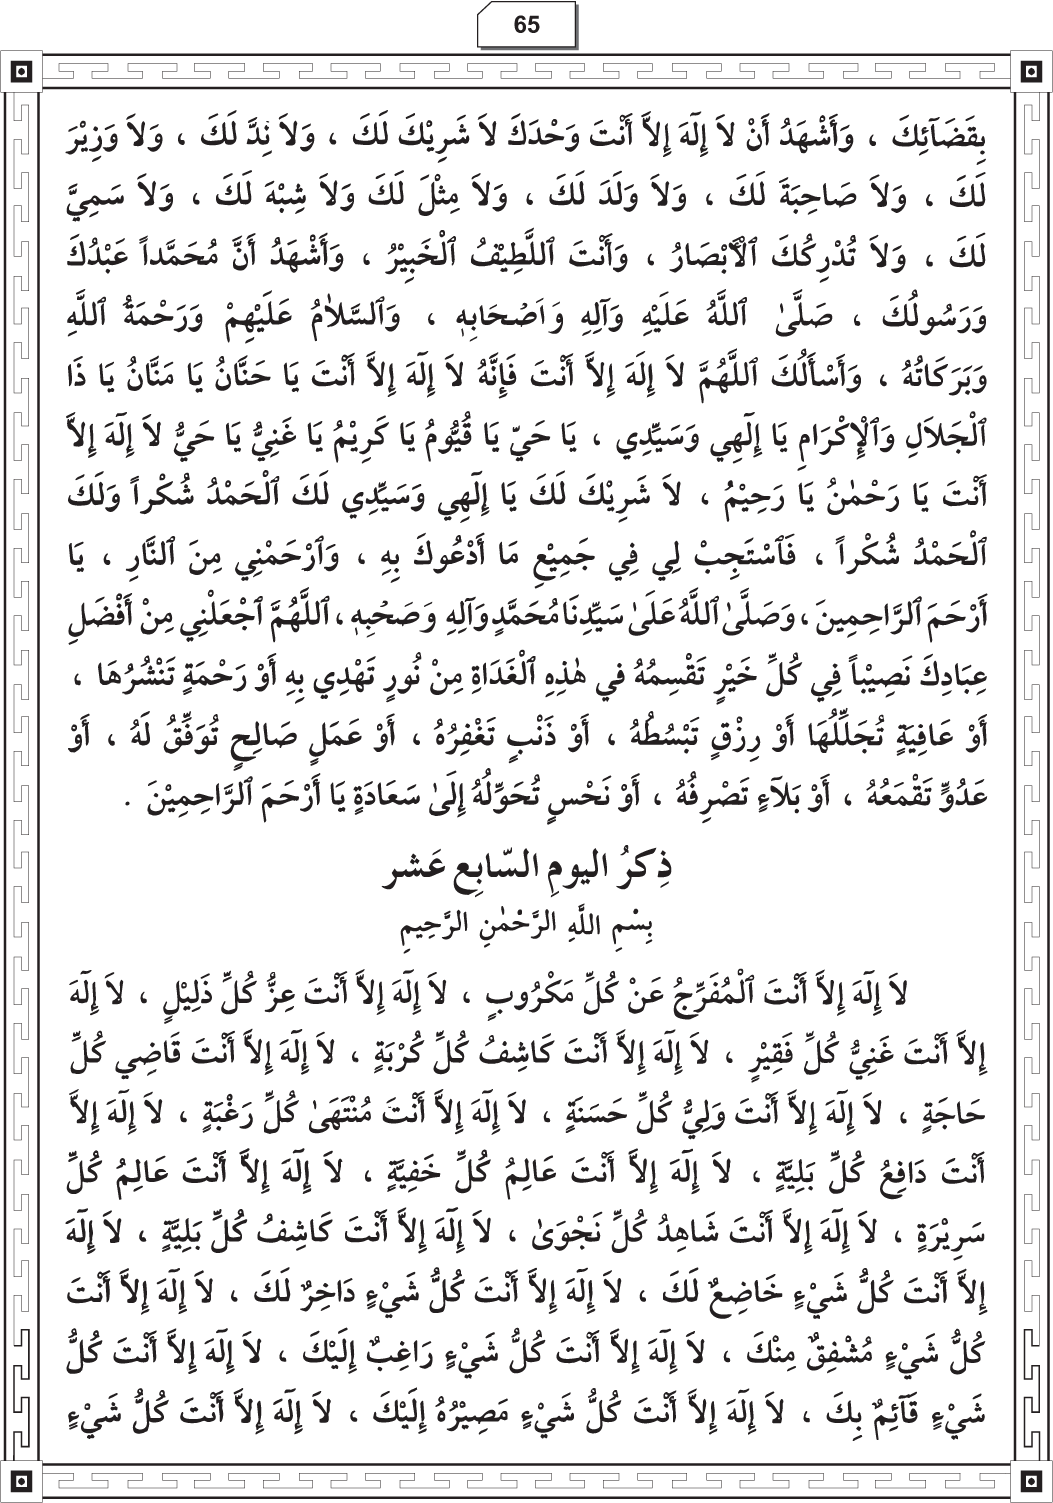 65
بِقَضَآئِكَ ، وَأَشْهَدُ أَنْ لاَ إِلَهَ إِلاَّ أَنْتَ وَحْدَكَ لاَ شَرِيْكَ لَكَ ، وَلاَ نِدَّ لَكَ ، وَلاَ وَزِيْرَ
لَكَ ، وَلاَ صَاحِبَةَ لَكَ ، وَلاَ وَلَدَ لَكَ ، وَلاَ مِثْلَ لَكَ وَلاَ شِبْهَ لَكَ ، وَلاَ سَمِيَّ
لَكَ ، وَلاَ تُدْرِكُكَ ٱلْأَبْصَارُ ، وَأَنْتَ ٱللَّطِيْفُ ٱلْخَبِيْرُ ، وَأَشْهَدُ أَنَّ مُحَمَّداً عَبْدُكَ
وَرَسُولُكَ ، صَلَّىٰ ٱللَّهُ عَلَيْهِ وَآلِهِ وَاَصْحَابِهِ ، وَٱلسَّلاٰمُ عَلَيْهِمْ وَرَحْمَةُ ٱللَّهِ
وَبَرَكَاتُهُ ، وَأَسْأَلُكَ ٱللَّهُمَّ لاَ إِلَهَ إِلاَّ أَنْتَ فَإِنَّهُ لاَ إِلَهَ إِلاَّ أَنْتَ يَا حَنَّانُ يَا مَنَّانُ يَا ذَا
ٱلْجَلاَلِ وَٱلْإِكْرَامِ يَا إِلَهِي وَسَيِّدِي ، يَا حَيّ يَا قُيُّومُ يَا كَرِيْمُ يَا غَنِيُّ يَا حَيُّ لاَ إِلَهَ إِلاَّ
أَنْتَ يَا رَحْمٰنُ يَا رَحِيْمُ ، لاَ شَرِيْكَ لَكَ يَا إِلَهِي وَسَيِّدِي لَكَ ٱلْحَمْدُ شُكْراً وَلَكَ
ٱلْحَمْدُ شُكْراً ، فَٱسْتَجِبْ لِي فِي جَمِيْعِ مَا أَدْعُوكَ بِهِ ، وَٱرْحَمْنِي مِنَ ٱلنَّارِ ، يَا
أَرْحَمَ ٱلرَّاحِمِينَ ، وَصَلَّىٰ ٱللَّهُ عَلَىٰ سَيِّدِنَا مُحَمَّدٍ وَآلِهِ وَصَحْبِهِ ، ٱللَّهُمَّ ٱجْعَلْنِي مِنْ أَفْضَلِ
عِبَادِكَ نَصِيْباً فِي كُلِّ خَيْرٍ تَقْسِمُهُ في هٰذِهِ ٱلْغَدَاةِ مِنْ نُورٍ تَهْدِي بِهِ أَوْ رَحْمَةٍ تَنْشُرُهَا ،
أَوْ عَافِيَةٍ تُجَلِّلُهَا أَوْ رِزْقٍ تَبْسُطُهُ ، أَوْ ذَنْبٍ تَغْفِرُهُ ، أَوْ عَمَلٍ صَالِحٍ تُوَفِّقُ لَهُ ، أَوْ
عَدُوٍّ تَقْمَعُهُ ، أَوْ بَلآءٍ تَصْرِفُهُ ، أَوْ نَحْسٍ تُحَوِّلُهُ إِلَىٰ سَعَادَةٍ يَا أَرْحَمَ ٱلرَّاحِمِيْنَ .
ذِكرُ اليومِ السّابِع عَشر
بِسْمِ اللَّهِ الرَّحْمٰنِ الرَّحِيمِ
لاَ إِلَهَ إِلاَّ أَنْتَ ٱلْمُفَرِّجُ عَنْ كُلِّ مَكْرُوبٍ ، لاَ إِلَهَ إِلاَّ أَنْتَ عِزُّ كُلِّ ذَلِيْلٍ ، لاَ إِلَهَ
إِلاَّ أَنْتَ غَنِيُّ كُلِّ فَقِيْرٍ ، لاَ إِلَهَ إِلاَّ أَنْتَ كَاشِفُ كُلِّ كُرْبَةٍ ، لاَ إِلَهَ إِلاَّ أَنْتَ قَاضِي كُلِّ
حَاجَةٍ ، لاَ إِلَهَ إِلاَّ أَنْتَ وَلِيُّ كُلِّ حَسَنَةٍ ، لاَ إِلَهَ إِلاَّ أَنْتَ مُنْتَهَىٰ كُلِّ رَغْبَةٍ ، لاَ إِلَهَ إِلاَّ
أَنْتَ دَافِعُ كُلِّ بَلِيَّةٍ ، لاَ إِلَهَ إِلاَّ أَنْتَ عَالِمُ كُلِّ خَفِيَّةٍ ، لاَ إِلَهَ إِلاَّ أَنْتَ عَالِمُ كُلِّ
سَرِيْرَةٍ ، لاَ إِلَهَ إِلاَّ أَنْتَ شَاهِدُ كُلِّ نَجْوَىٰ ، لاَ إِلَهَ إِلاَّ أَنْتَ كَاشِفُ كُلِّ بَلِيَّةٍ ، لاَ إِلَهَ
إِلاَّ أَنْتَ كُلُّ شَيْءٍ خَاضِعٌ لَكَ ، لاَ إِلَهَ إِلاَّ أَنْتَ كُلُّ شَيْءٍ دَاخِرٌ لَكَ ، لاَ إِلَهَ إِلاَّ أَنْتَ
كُلُّ شَيْءٍ مُشْفِقٌ مِنْكَ ، لاَ إِلَهَ إِلاَّ أَنْتَ كُلُّ شَيْءٍ رَاغِبٌ إِلَيْكَ ، لاَ إِلَهَ إِلاَّ أَنْتَ كُلُّ
شَيْءٍ قَآئِمٌ بِكَ ، لاَ إِلَهَ إِلاَّ أَنْتَ كُلُّ شَيْءٍ مَصِيْرُهُ إِلَيْكَ ، لاَ إِلَهَ إِلاَّ أَنْتَ كُلُّ شَيْءٍ